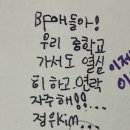 BF애들아!
우리 중학교
가서도 열심
히 하고 연락
자주해!!...
정위kim...
이제
이